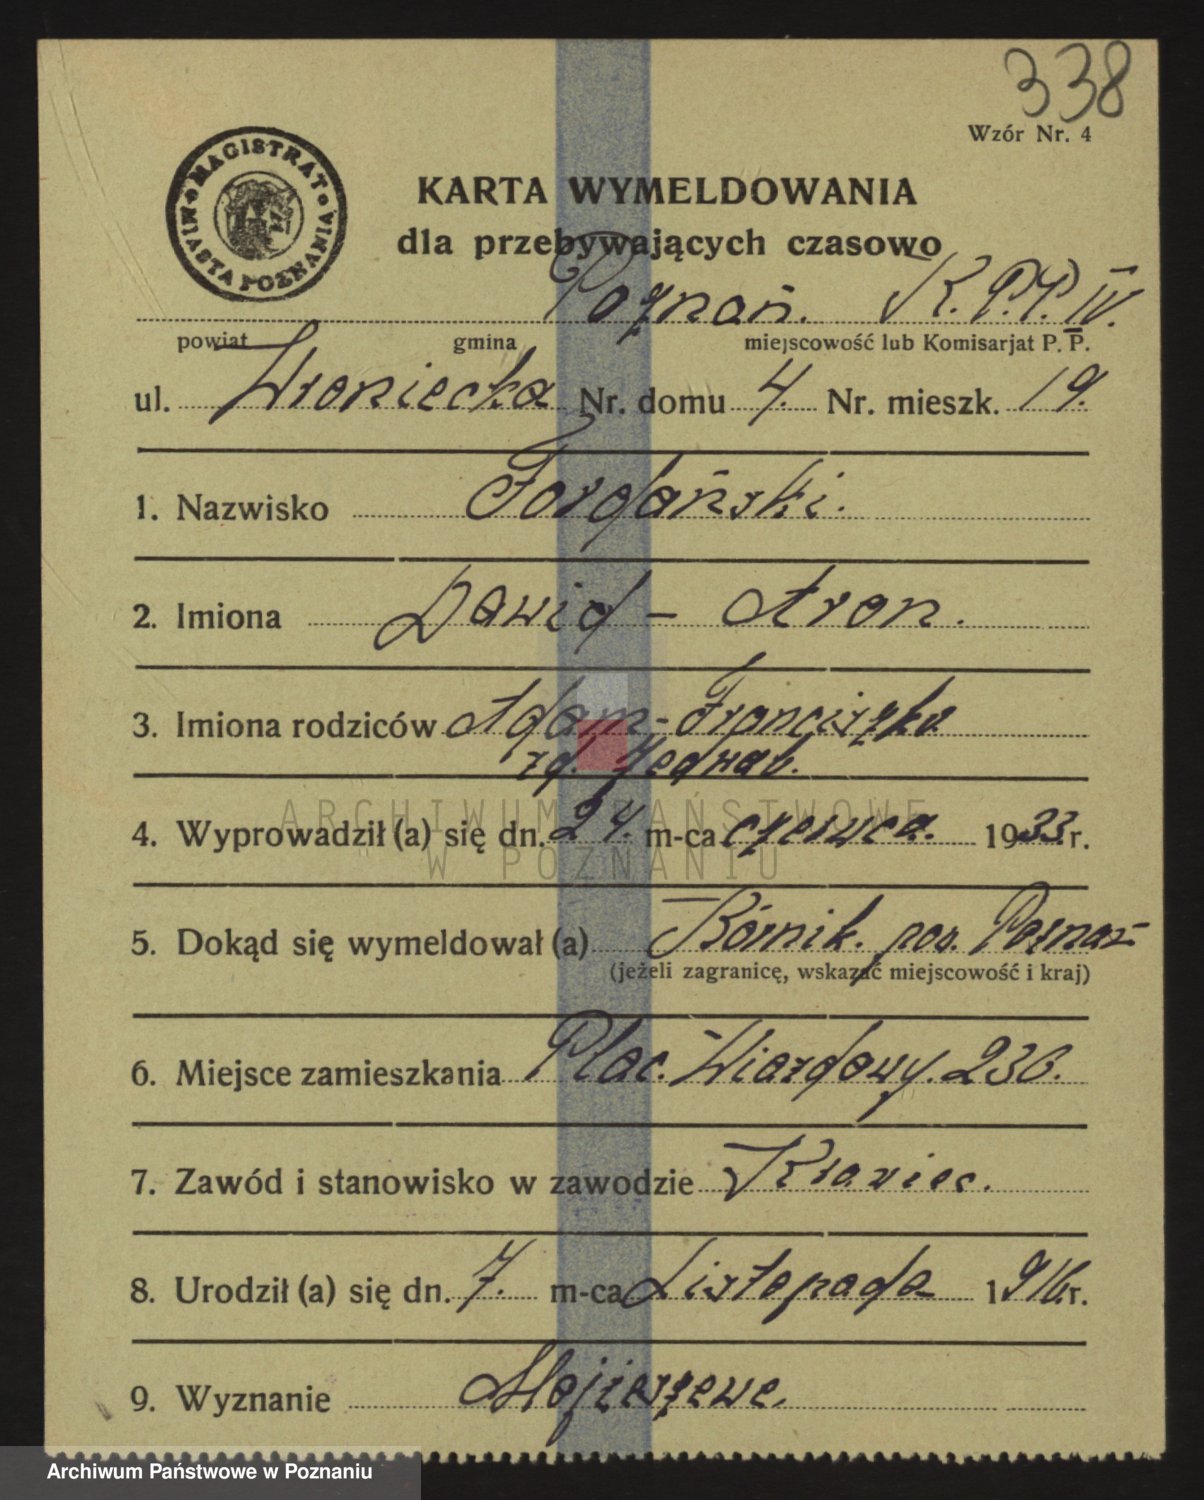 338
Wzór Nr. 4
MAGISTRAT MIASTA POZNANIA
KARTA WYMELDOWANIA
dla przebywających czasowo
Poznań. K.P.P. IV.
powiat gmina miejscowość lub Komisarjat P. P.
ul. Wroniecka Nr. domu 4. Nr. mieszk. 19.
1. Nazwisko Fordański.
2. Imiona Dawid - Aron.
3. Imiona rodziców Adam - Franciszka
zd. Jedwab.
4. Wyprowadził (a) się dn. 24. m-ca czerwca. 1933 r.
5. Dokąd się wymeldował (a) Kórnik. pow. Poznań
(jeżeli zagranicę, wskazać miejscowość i kraj)
6. Miejsce zamieszkania Plac. 230.
7. Zawód i stanowisko w zawodzie Krawiec.
8. Urodził (a) się dn. 7. m-ca Listopada 1916 r.
9. Wyznanie Mojżeszowe.
ARCHIWUM PAŃSTWOWE
W POZNANIU
Archiwum Państwowe w Poznaniu